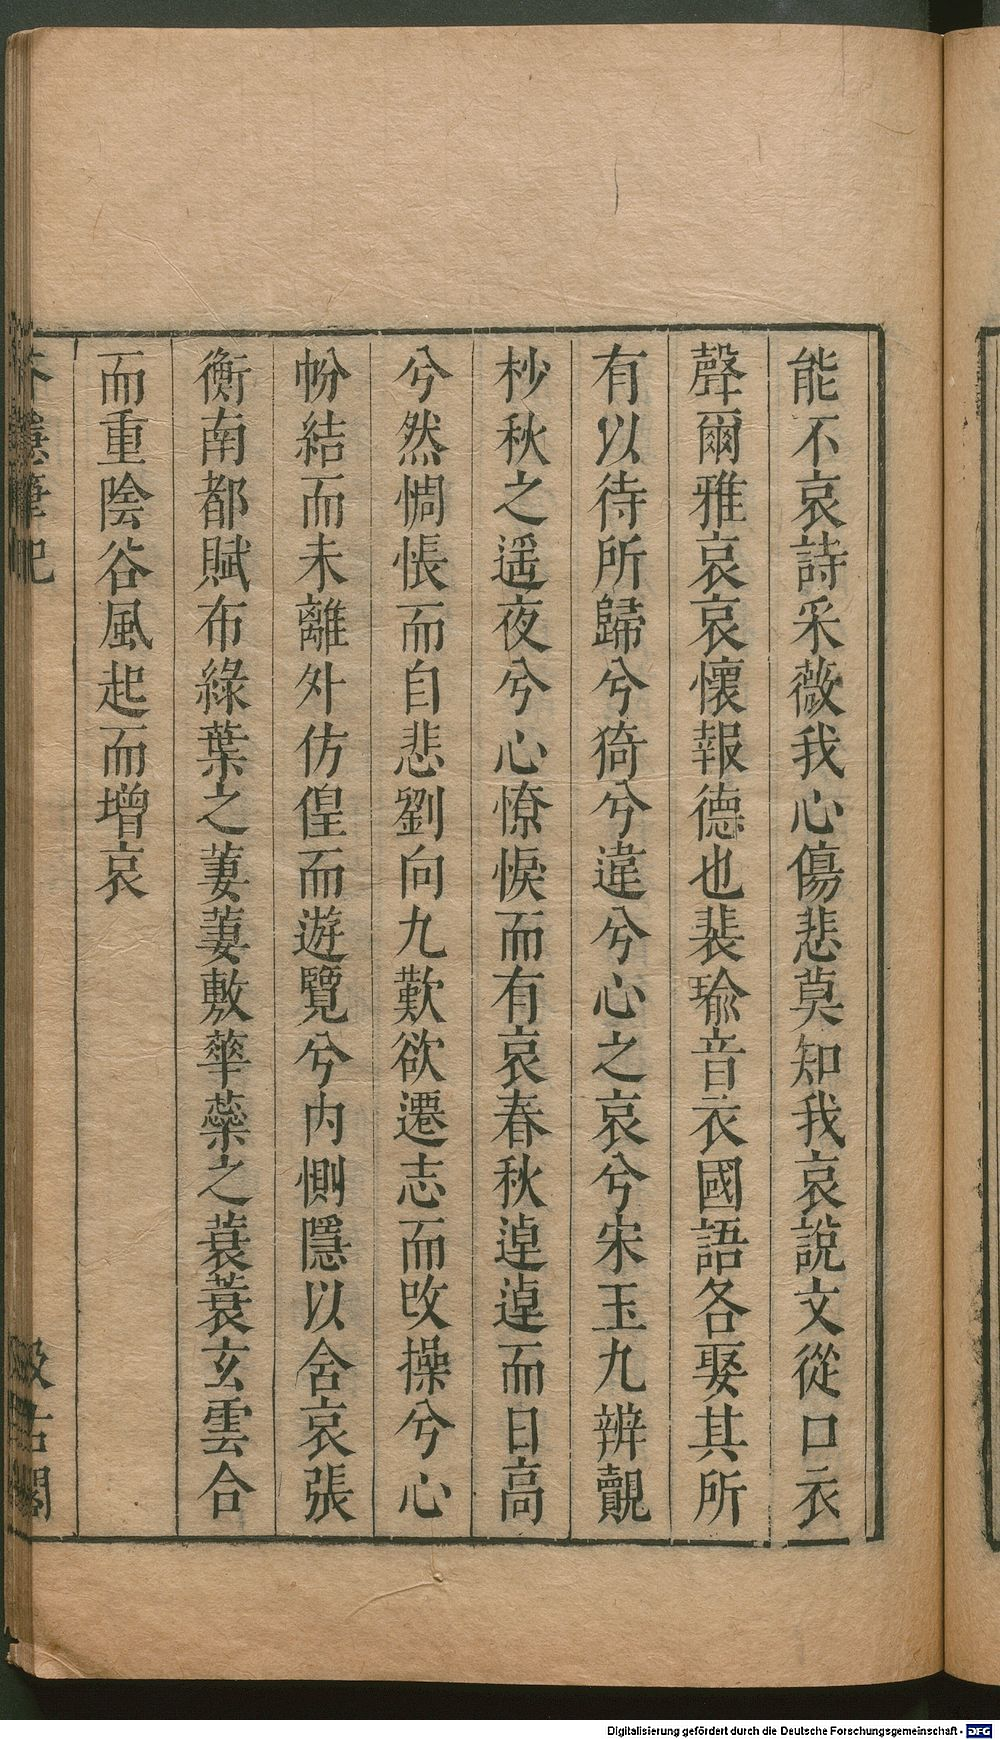 能不哀詩采薇我心傷悲莫知我哀說文從口衣
聲爾雅哀哀懷報德也裴瑜音衣國語各娶其所
有以待所歸兮猗兮違兮心之哀兮宋玉九辨覿
杪秋之遥夜兮心憭悷而有哀春秋逴逴而日高
兮然惆悵而自悲劉向九歎欲遷志而改操兮心
帉結而未離外仿偟而遊覽兮内惻隱以含哀張
衡南都賦布綠葉之萋萋敷華蘂之蓑蓑玄雲合
而重陰谷風起而增哀
筆記
汲古閣
Digitalisierung gefördert durch die Deutsche Forschungsgemeinschaft - DFG